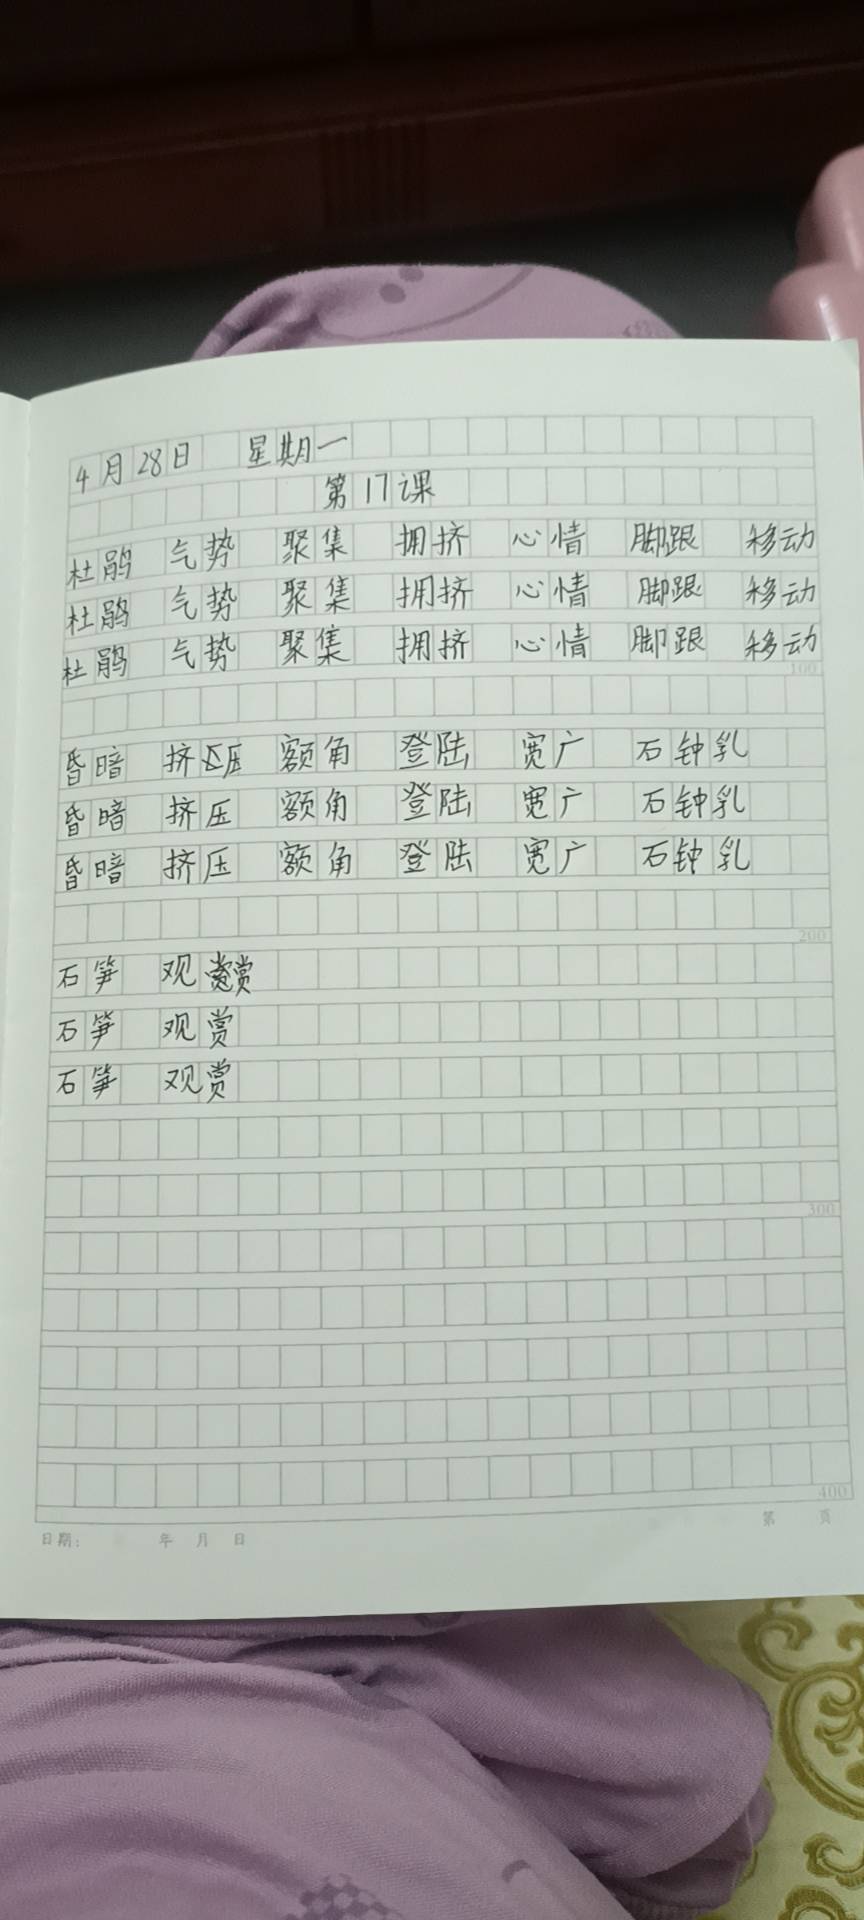 4月28日 星期一
第17课
杜鹃 气势 聚集 拥挤 心情 脚跟 移动
杜鹃 气势 聚集 拥挤 心情 脚跟 移动
杜鹃 气势 聚集 拥挤 心情 脚跟 移动
100
昏暗 挤压 额角 登陆 宽广 石钟乳
昏暗 挤压 额角 登陆 宽广 石钟乳
昏暗 挤压 额角 登陆 宽广 石钟乳
200
石笋 观赏
石笋 观赏
石笋 观赏
300
400
日期: 年 月 日 第 页